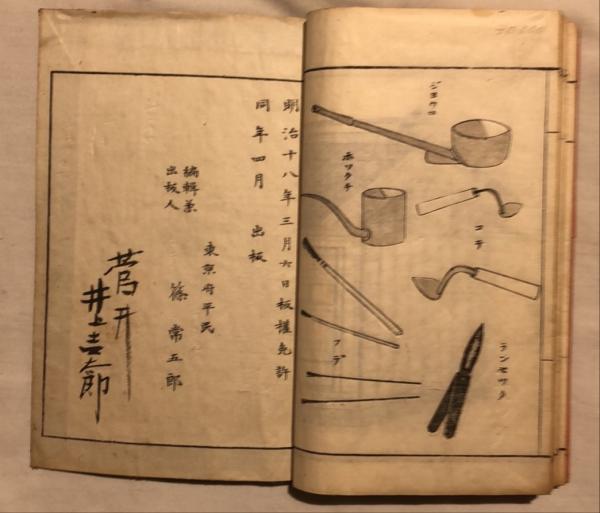 ジヨウロ
コテ
ランセツタ
ホツクチ
フデ
明治十八年三月六日板權免許
同年四月 出板
東京府平民
編輯兼
出板人
篠常五郎
菅井
井上